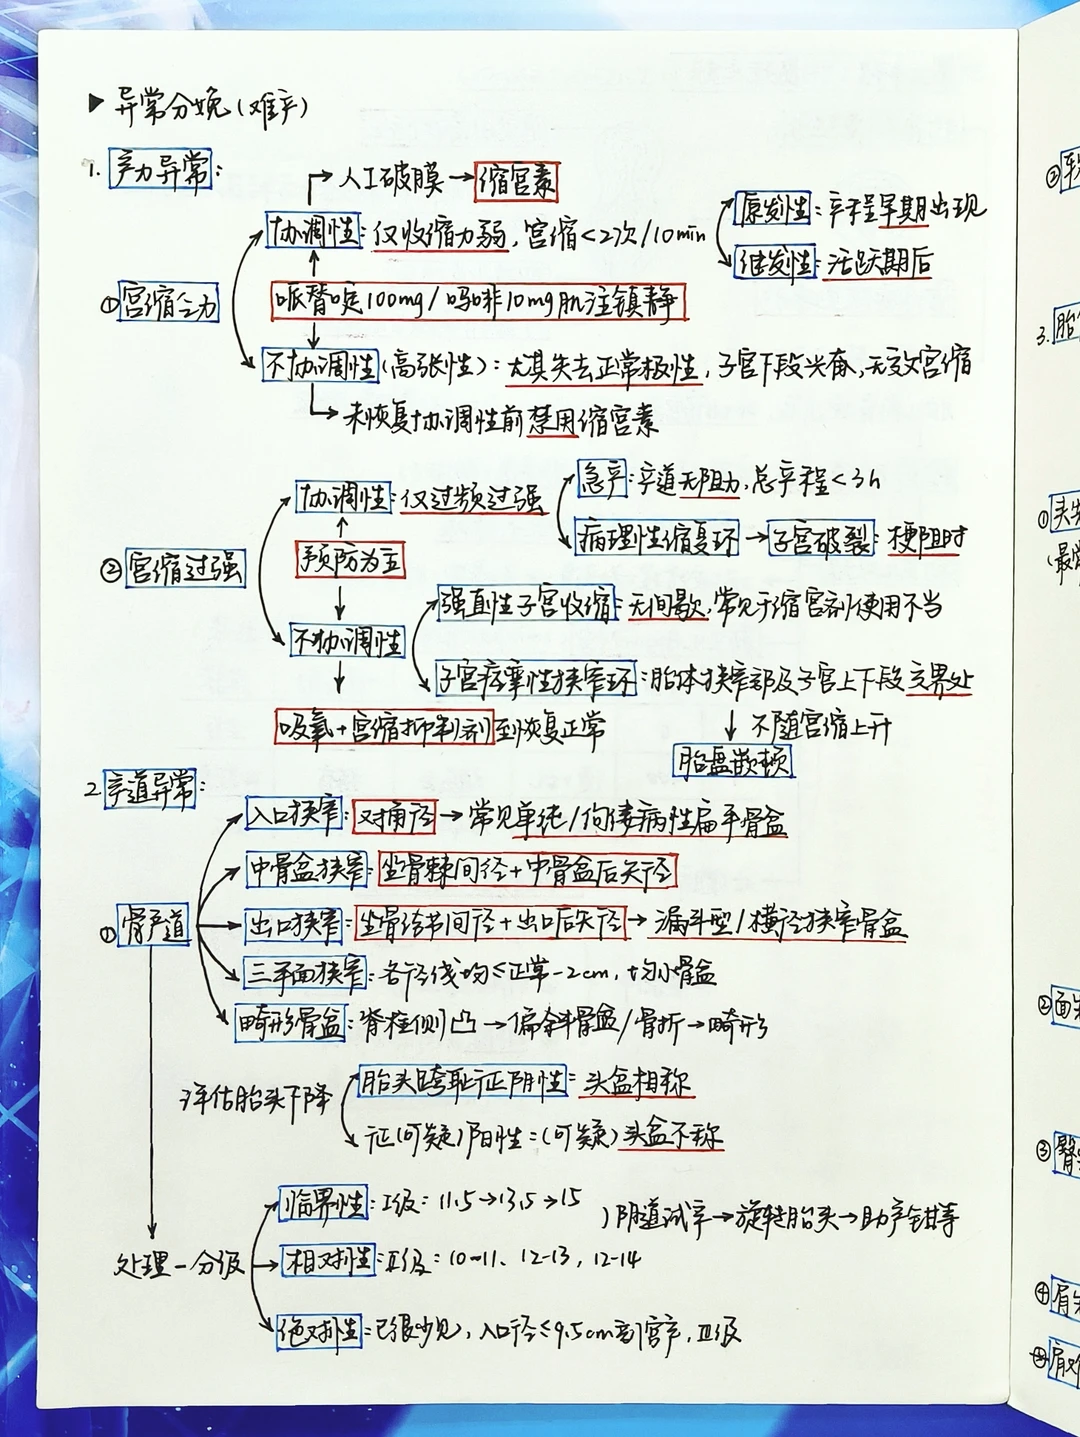 ▶ 异常分娩(难产)
1. 产力异常:
→ 人工破膜 → 缩宫素
协调性: 仅收缩力弱, 宫缩<2次/10min
原发性: 产程早期出现
继发性: 活跃期后
① 宫缩乏力
哌替啶100mg/吗啡10mg肌注镇静
不协调性(高张性): 尤其失去正常极性, 子宫下段兴奋, 无效宫缩
→ 未恢复协调性前禁用缩宫素
协调性: 仅过频过强
急产: 产道无阻力, 总产程<3h
病理性缩复环 → 子宫破裂: 梗阻时
② 宫缩过强
预防为主
不协调性
强直性子宫收缩: 无间歇, 常见于缩宫剂使用不当
子宫痉挛性狭窄环: 胎体狭窄部及子宫上下段交界处
↓ 不随宫缩上升
吸氧+宫缩抑制剂到恢复正常
胎盘嵌顿
2. 产道异常:
入口狭窄: 对角径 → 常见单纯/佝偻病性扁平骨盆
中骨盆狭窄: 坐骨棘间径+中骨盆后矢径
① 骨产道
出口狭窄: 坐骨结节间径+出口后矢径 → 漏斗型/横径狭窄骨盆
三平面狭窄: 各径线均≤正常-2cm, 均小骨盆
畸形骨盆: 脊柱侧凸 → 偏斜骨盆/骨折 → 畸形
评估胎头下降
胎头跨耻征阴性: 头盆相称
征(可疑)阳性=(可疑)头盆不称
处理-分级
临界性: I级: 11.5→13.5→15
阴道试产 → 旋转胎头 → 助产钳等
相对性: II级: 10-11、12-13, 12-14
绝对性: 已很少见, 入口径≤9.5cm剖宫产, III级
② 软
3. 胎
① 头先
(最常
② 面先
③ 臀
④ 肩先
肩难